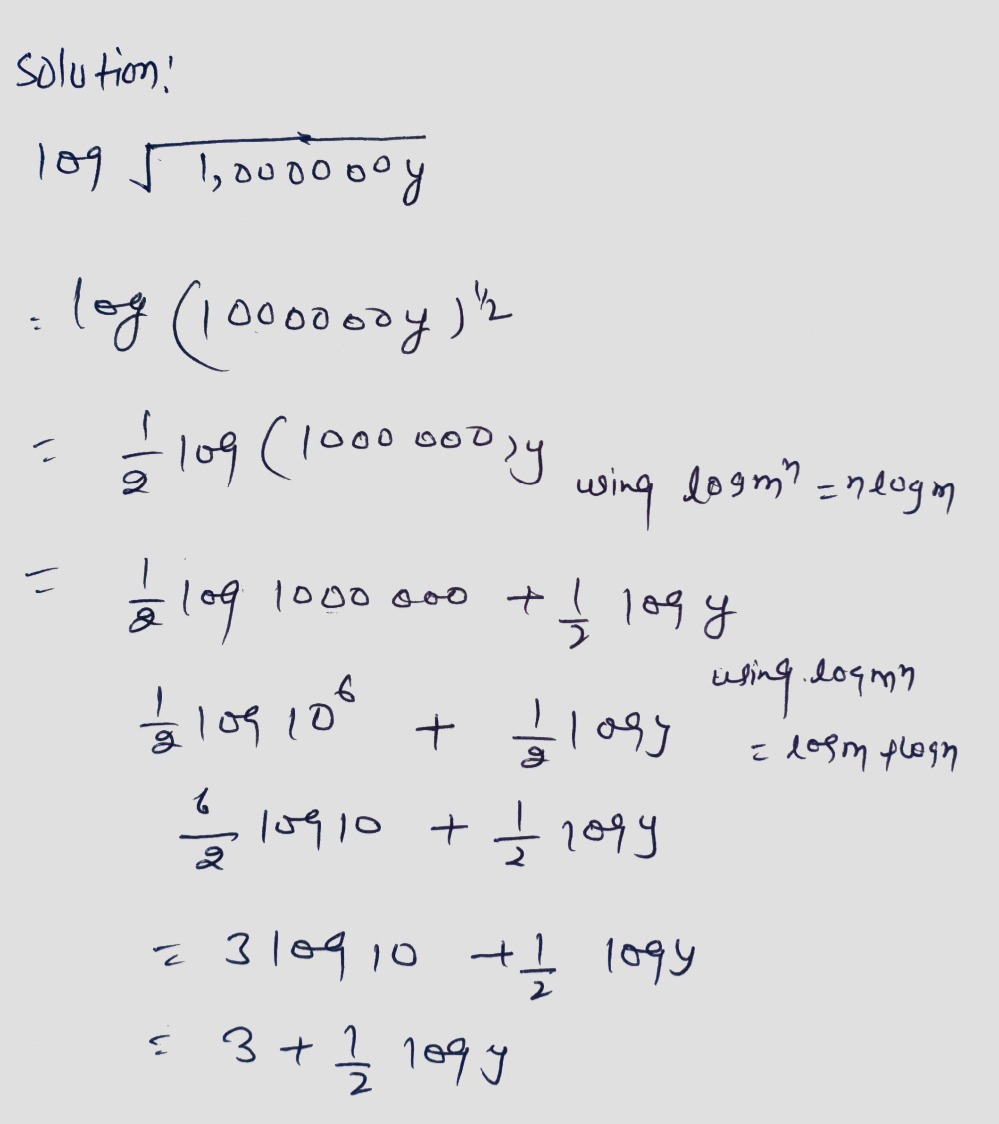 Solution:
log √1,000000y
= log (1000000y)^1/2
= 1/2 log (1000 000)y using logm^n = nlogm
= 1/2 log 1000 000 + 1/2 log y
using logmn
1/2 log 10^6 + 1/2 logy = logm + logn
6/2 log 10 + 1/2 logy
= 3 log 10 + 1/2 logy
= 3 + 1/2 log y